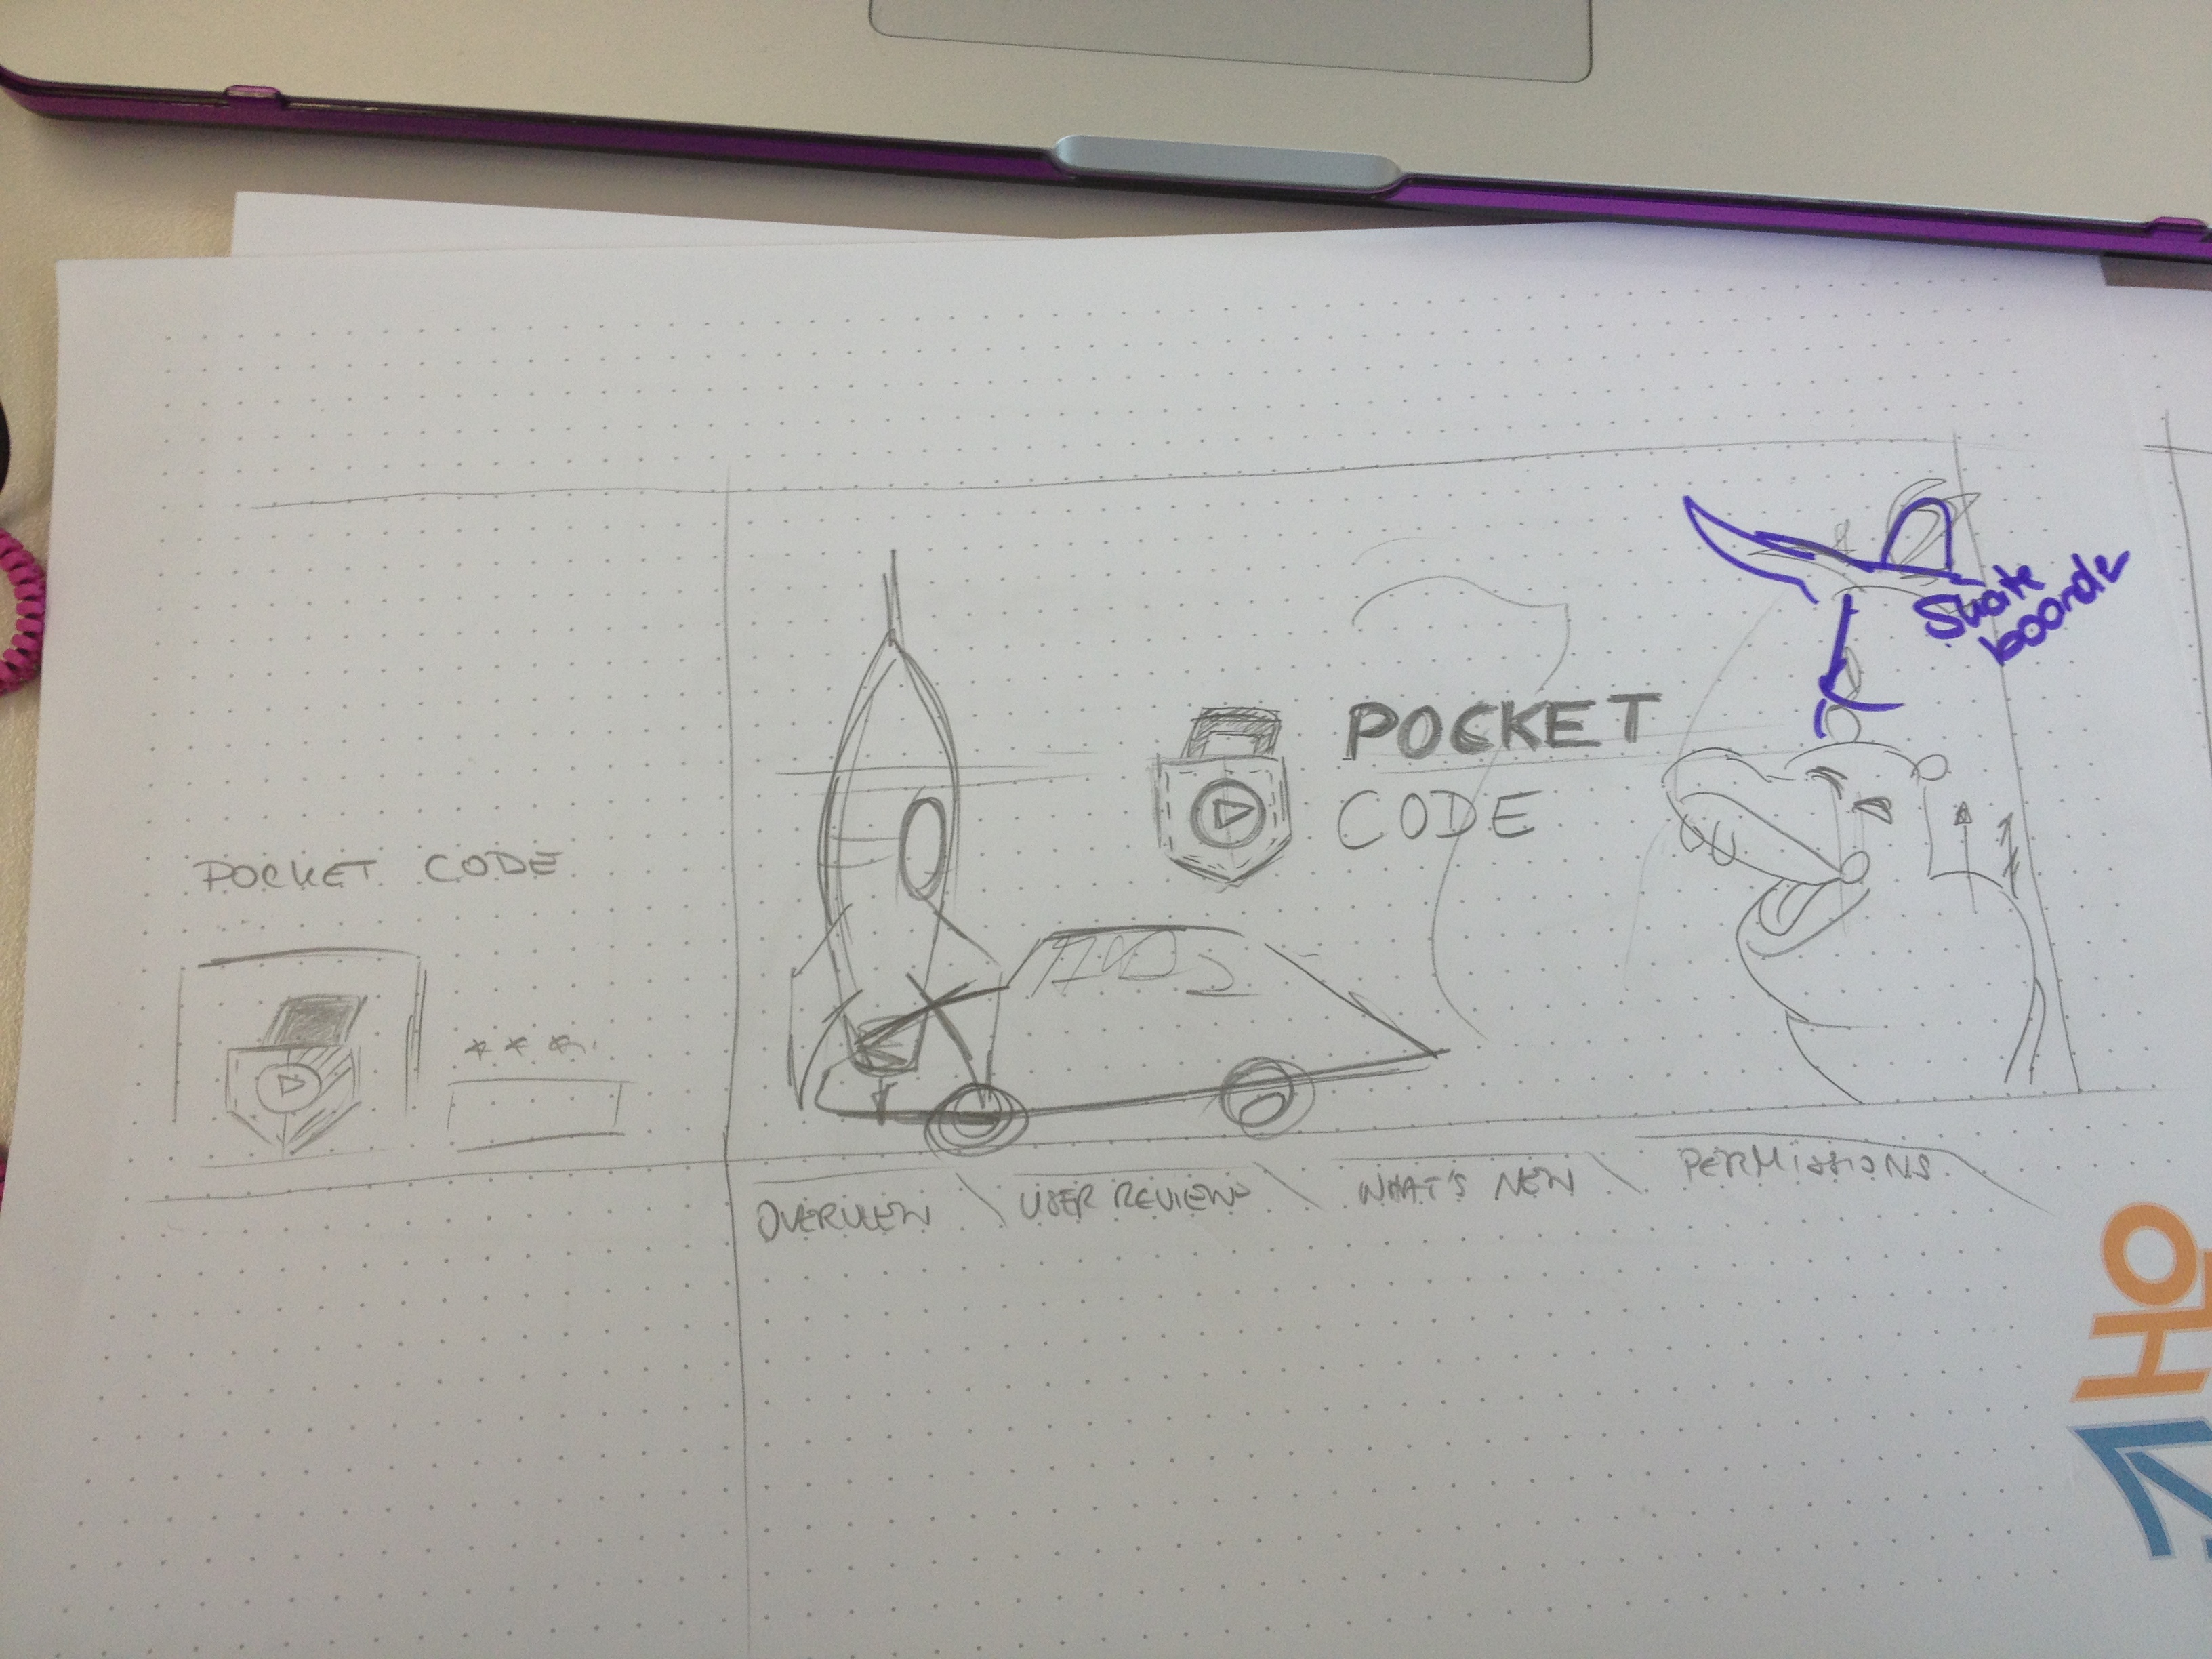 POCKET CODE
POCKET
CODE
Skate
boarder
OVERVIEW \ USER REVIEWS \ WHAT'S NEW \ PERMISSIONS